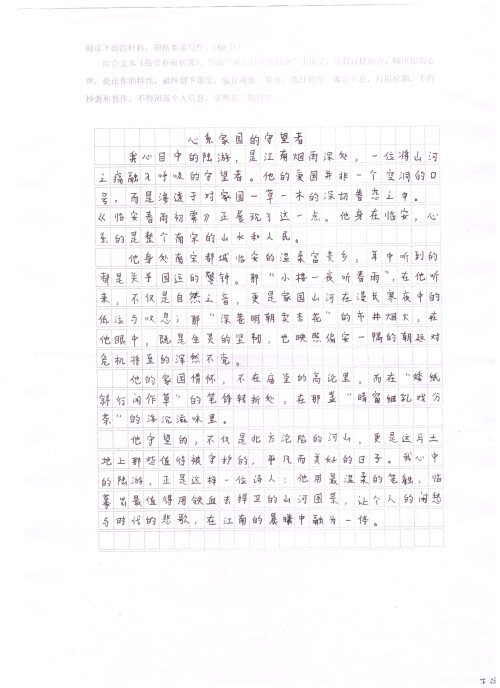 阅读下面的材料，根据要求写作。（60分）
结合文本《临安春雨初霁》，写
抄袭和套作，不得泄露个人信息，
心系家国的守望者
我心目中的陆游，是江南烟雨深处，一位将山河
之痛融入呼吸的守望者。他的爱国并非一个空洞的口
号，而是浸透于对家国一草一木的深切眷恋之中。
《临安春雨初霁》正展现了这一点。他身在临安，心
系的是整个南宋的山水和人民。
他身处南宋都城临安的温柔富贵乡，耳中听到的
都是关乎国运的警钟。那“小楼一夜听春雨”，在他听
来，不仅是自然之音，更是家国山河在漫长寒夜中的
低泣与叹息；那“深巷明朝卖杏花”的市井烟火，在
他眼中，既是生灵的坚韧，也映照偏安一隅的朝廷对
危机将至的浑然不觉。
他的家国情怀，不在庙堂的高论里，而在“矮纸
斜行闲作草”的笔锋转折处，在那盏“晴窗细乳戏分
茶”的浮沉滋味里。
他守望的，不仅是北方沦陷的河山，更是这片土
地上那些值得被守护的，平凡而美好的日子。我心中
的陆游，正是这样一位诗人：他用最温柔的笔触，临
摹出最值得用铁血去捍卫的山河图景，让个人的闲愁
与时代的悲歌，在江南的晨曦中融为一体。